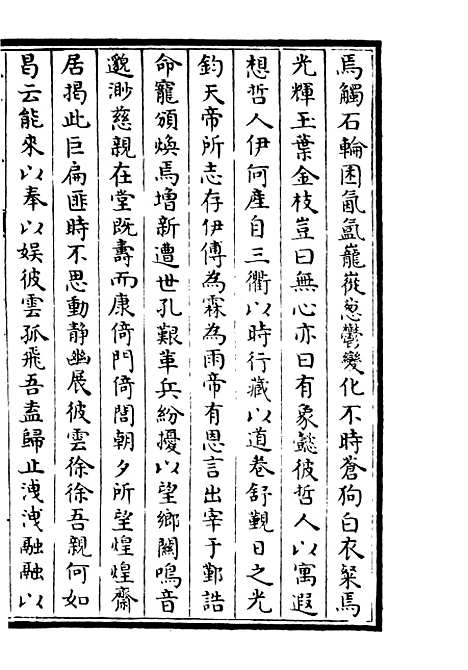 焉觸石輪囷氤氳巃嵸蔥鬱變化不時蒼狗白衣粲焉
光輝玉葉金枝豈曰無心亦曰有象懿彼哲人以寓遐
想哲人伊何產自三衢以時行藏以道卷舒覲日之光
鈞天帝所志存伊傅為霖為雨帝有恩言出宰于鄞誥
命寵頒煥焉增新遭世孔艱革兵紛擾以望鄉關鳴音
邈渺慈親在堂既壽而康倚門倚閭朝夕所望煌煌齋
居揭此巨扁匪時不思動靜幽展彼雲徐徐吾親何如
曷云能來以奉以娛彼雲孤飛吾盍歸止洩洩融融以